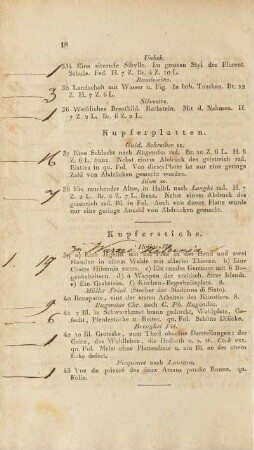 18
Unbek.
34 Eine sitzende Sibylle. In grossem Styl der Florent.
Schule. Fed. H. 7 Z. Br. 4 Z. 10 L.
3
35 Landschaft mit Wasser u. Fig. In farb. Tuschen. Br. 22
Z. H. 7 Z. 6 L.
Silvestre.
1
36 Weibliches Brustbild. Rothstein. Mit d. Nahmen. H.
7 Z. 2 L. Br. 6 Z. 2 L.
Kupferplatten.
Guld. Schreiber sc.
16
37 Eine Schlacht nach Rugendas rad. Br. 20 Z. 6 L. H. 6
Z. 6 L. franz. Nebst einem Abdruck des geistreich rad.
Blattes in qu. Fol. Von dieser Platte ist nur eine geringe
Zahl von Abdrücken gemacht worden.
Idem sc.
7
38 Ein rauchender Alter, in Halbf. nach Longhi rad. H. 7
Z. 2 L. Br. 4 Z. franz. Nebst einem Abdruck des
geistreich rad. Bl. in Fol. Auch von dieser Platte wurde
nur eine geringe Anzahl von Abdrücken gemacht.
Kupferstiche.
1. 19
39 a) Ein
und zwei
Hunden in einem Walde von allerlei Thieren. b) Eine
Chaos Hibernia
c) Ein rundes Gemüser mit 6 Bo-
d) 2 Mappen der arabisch.
Inseln
e) Ein Grabstein. f) Kirchen-Begräbnissplatz. 8.
Müller Fried. (Stecher der Madonna di Sisto).
40 Bonaparte, eine der ersten Arbeiten des Künstlers. 8.
Rugendas Chr. nach G. Ph. Rugendas.
6
41 7 Bl. in Schwarzkunst braun gedruckt, Waldplätze, Ge-
fecht, Pferdestücke u. Reiter. qu. Fol. Schöne Drücke.
Berghei Fet.
4
42 10 Bl. Groteske, zum Theil obscöne Darstellungen: der
Geitz, das Wohlleben, die
u. s. w.
qu. Fol. Meist ohne Plattenränder u. ein Bl. an der obern
Ecke defect.
Picquenot nach Lantara.
1
43 Vue du palais des deux Amans proche Rouen. qu.
Folio.